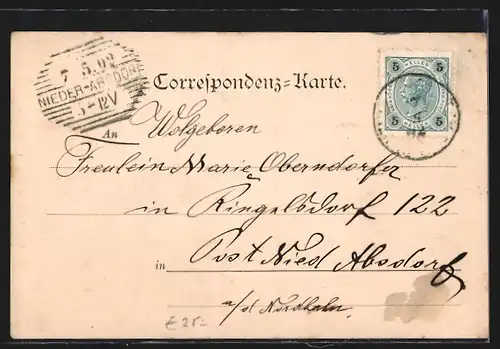 7 5.02
NIEDER-ABSDORF
5-12V
Correspondenz=Karte.
5 HELLER 5
5 5
An
Wolgeboren
Freulein Marie Oberndorfer
in Ringelsdorf 122
Post Nied Absdorf
in
a/d Nordbahn,
€25-